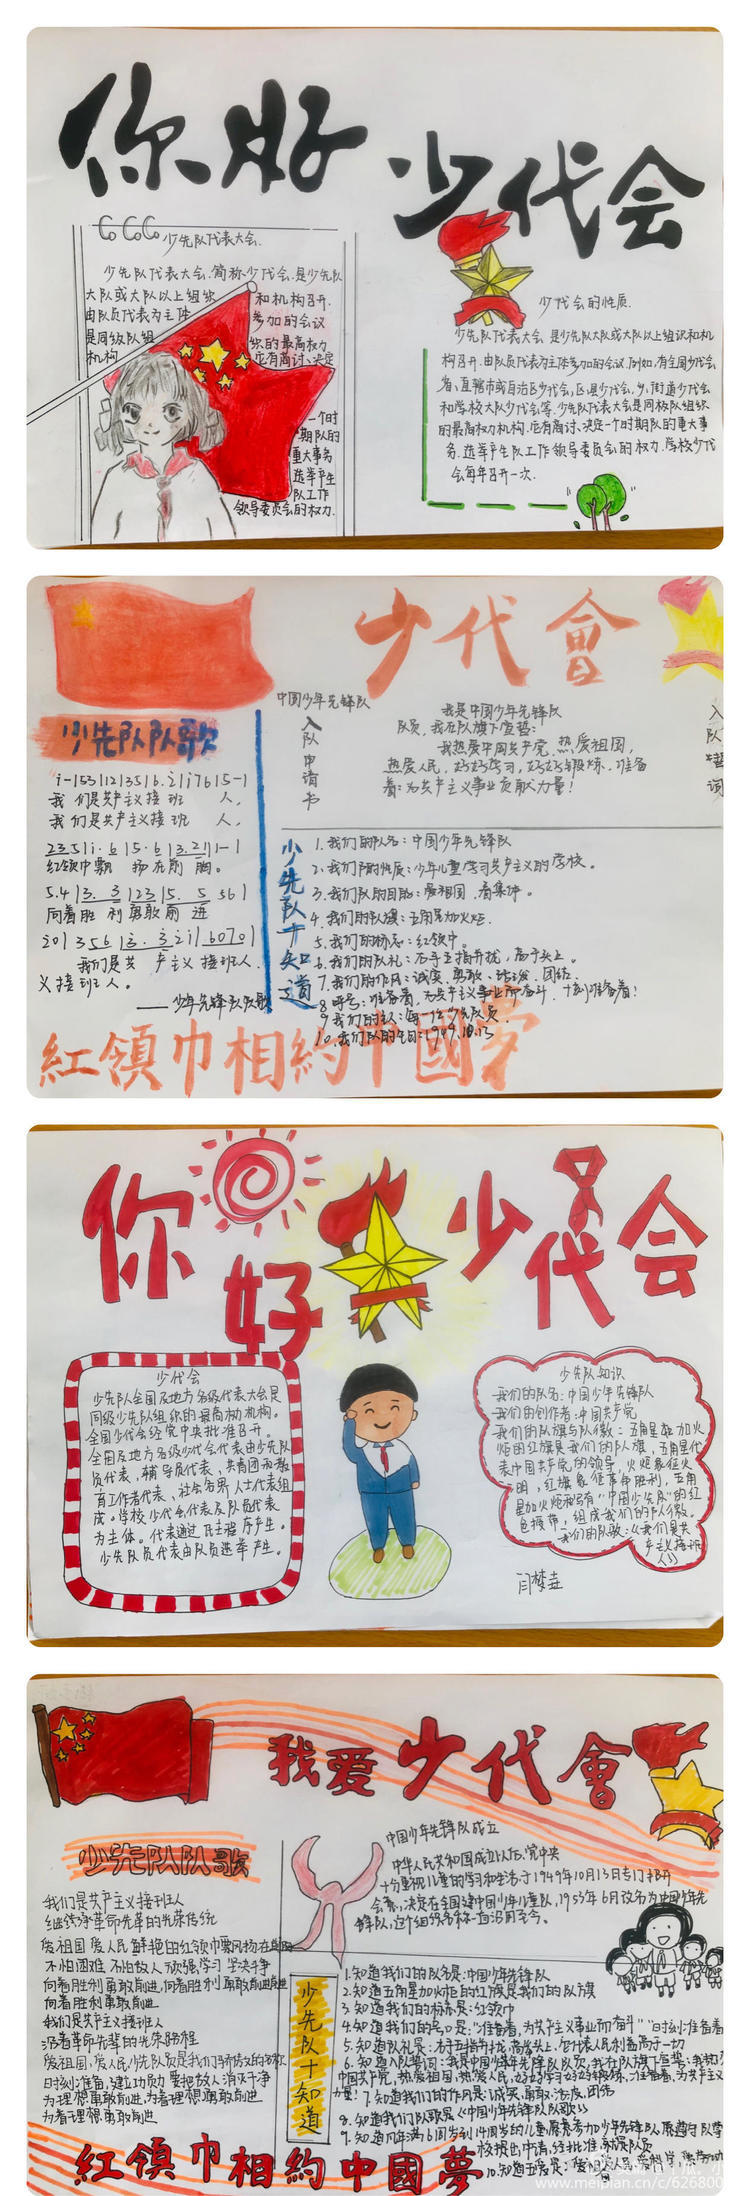 你好 少代会
少先队代表大会.
少先队代表大会.简称少代会.是少先队
大队或大队以上组织 和机构召开.
由队员代表为主体 参加的会议
是同级队组 织的最高权力
机构 应有商讨、决定
一个时
期队的
重大事务
选举产生
队工作
领导委员会的权力.
少代会的性质.
少先队代表大会是少先队大队或大队以上组识和机
构召开.由队员代表为主体参加的会议.例如,有全国少代会
省、直辖市或自治区少代会,区县少代会,乡、街道少代会
和学校大队少代会等.少先队代表大会是同级队组织
的最高权力机构.应有商讨、决定一个时期队的重大事
务.选举产生队工作领导委员会的权力.学校少代
会每年召开一次.
少代會
少先队队歌
我们是共产主义接班 人,
我们是共产主义接班 人,
红领巾飘 扬在前 胸。
向着胜 利勇敢前 进
我们是共 产主义 接班人.
义接班人。
——少年先锋队队歌
中国少年先锋队
入队申请书
我是中国少年先锋队
队员,我在队旗下宣誓:
我热爱中国共产党,热爱祖国,
热爱人民,好好学习,好好锻炼,准备
着:为共产主义事业贡献力量!
入队誓词
少先队十知道
1.我们的队名:中国少年先锋队
2.我们队的性质:少年儿童学习共产主义的学校。
4.我们的队旗:五角星加火炬.
5.我们的标志:红领巾。
6.我们的队礼:右手五指并拢,高举头上。
7.我们的作风:诚实、勇敢、活泼、团结.
10.我们队的生日:1949.10.13
紅領巾相約中國夢
你好 少代会
少代会
少先队全国及地方各级代表大会是
同级少先队组织的最高权力机构。
全国少代会经党中央批准召开。
全国及地方各级少代会代表由少先队
员代表,辅导员代表,共青团和教
育工作者代表,社会各界人士代表组
成。学校少代会代表及队员代表
为主体。代表通过民主程序产生。
少先队员代表由队员选举产生。
少先队知识
我们的队名:中国少年先锋队
我们的创作者:中国共产党
我们的队旗与队徽:五角星加火
炬的红旗是我们的队旗,五角星代
表中国共产党的领导,火炬象征光
明,红旗象征革命胜利,五角
星加火炬和写有“中国少先队”的红
色绶带,组成我们的队徽。
我们的队歌:《我们是共
产主义接班
人》
我爱少代會
少先队队歌
我们是共产主义接班人
继续承革命先辈的光荣传统
爱祖国 爱人民 鲜艳的红领巾飘扬在
不怕困难 不怕敌人 顽强学习 坚决斗争
向着胜利勇敢前进,向着胜利勇敢前进
向着胜利勇敢前进
我们是共产主义接班人
沿着革命先辈的光荣路程
爱祖国,爱人民,少先队员是我们骄傲的名称
时刻准备,建立功勋 要把敌人消灭干净
为理想勇敢前进,为着理想勇敢前进
为着理想勇敢前进
中国少年先锋队成立
中华人民共和国成立以后,党中央
十分重视儿童的学习和生活,于1949年10月13日专门召开
会象,决定在全国建中国少年儿童队,1953年6月改名为中国少年先
锋队,这个组织名称一直沿用至今。
少先队十知道
1.知道我们的队名是:中国少年先锋队
2.知道五角星加火炬的红旗是我们的队旗
3.知道我们的标志是:红领巾
4.知道我们的号口是:“准备着,为共产主义事业而奋斗”“时刻准备着
5.知道队礼是:右手五指并拢,高举头上,它代表人民利益高于一切
6.知道入队誓词:我是中国少年先锋队队员,我在队旗下宣誓:我热
中国共产党,热爱祖国,热爱人民,好好学习,好好锻炼,准备着,为共产主义
力量! 7.知道我们的作风是:诚实、勇敢、活泼、团结
8.知道我们队歌是《中国少年先锋队队歌》
9.知道凡年满6周岁到14周岁的儿童愿意参加少年先锋队,愿遵守队章
紅領巾相約中國夢
www.meipian.cn/c/626800